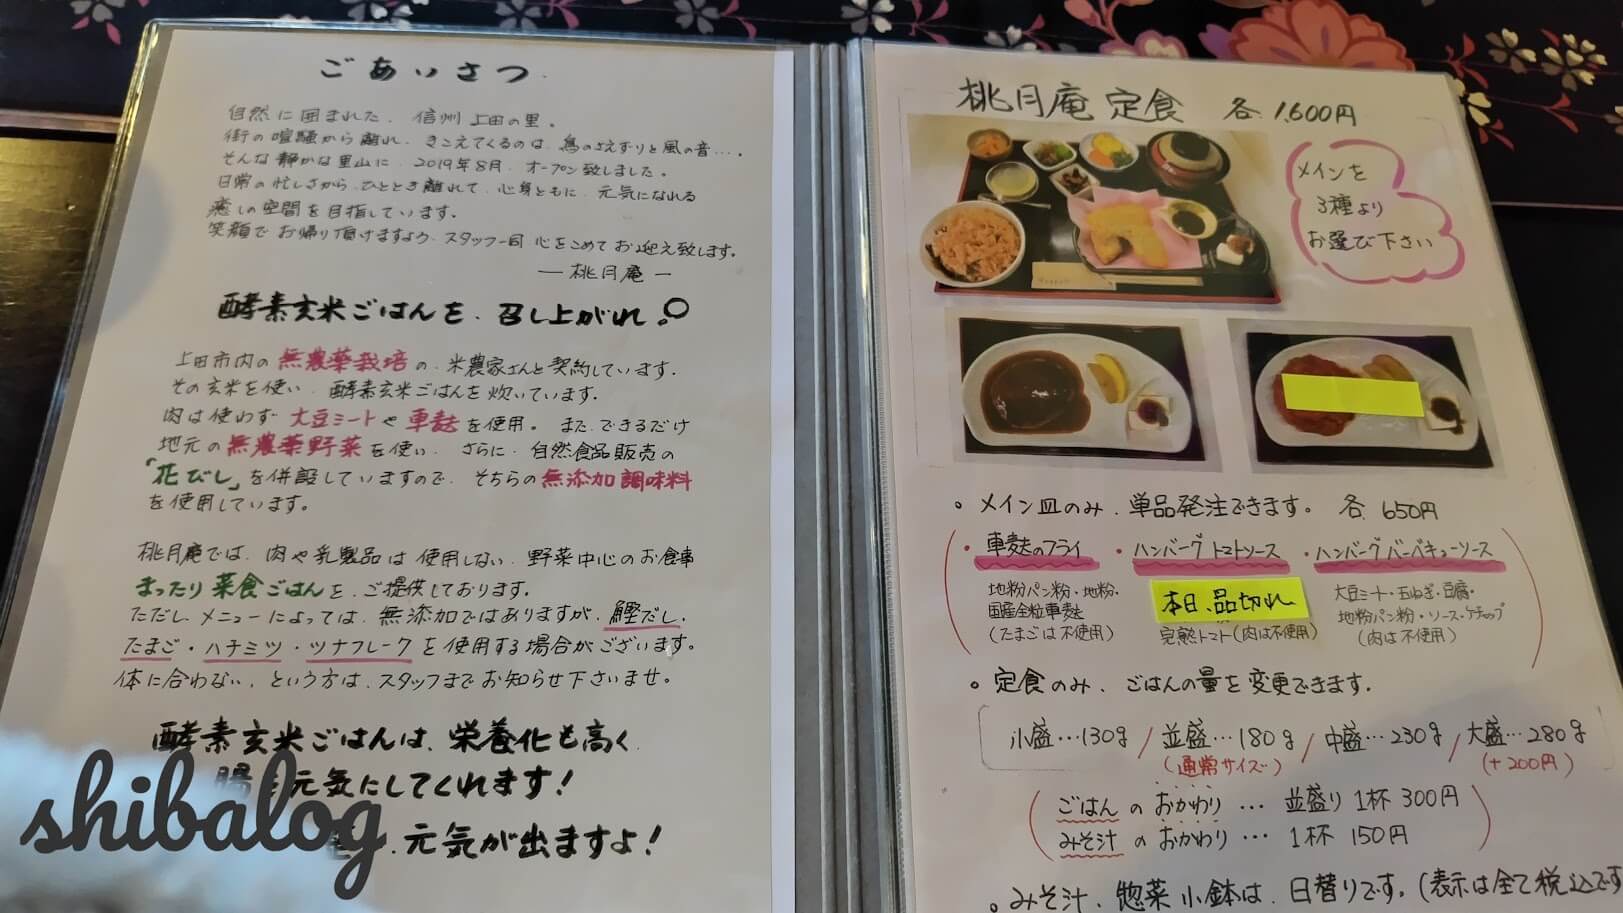 ごあいさつ
自然に囲まれた、信州上田の里。
街の喧騒から離れ、きこえてくるのは、鳥のさえずりと風の音…。
そんな静かな里山に、2019年8月、オープン致しました。
日常の忙しさから、ひととき離れて、心身ともに、元気になれる
癒しの空間を目指しています。
笑顔でお帰り頂けますよう、スタッフ一同心をこめてお迎え致します。
― 桃月庵 ―
酵素玄米ごはんを、召し上がれ。
上田市内の無農薬栽培の、米農家さんと契約しています。
その玄米を使い、酵素玄米ごはんを炊いています。
肉は使わず大豆ミートや車麩を使用。また、できるだけ
地元の無農薬野菜を使い、さらに、自然食品販売の
「花びし」を併設していますので、そちらの無添加調味料
を使用しています。
桃月庵では、肉や乳製品は使用しない、野菜中心のお食事
まったり菜食ごはんを、ご提供しております。
ただし、メニューによっては、無添加ではありますが、鰹だし、
たまご・ハチミツ・ツナフレークを使用する場合がございます。
体に合わない、という方は、スタッフまでお知らせ下さいませ。
酵素玄米ごはんは、栄養化も高く
腸を元気にしてくれます!
、元気が出ますよ!
shibalog
桃月庵 定食 各1,600円
メインを
3種より
お選び下さい
。メイン皿のみ、単品発注できます。各650円
・車麩のフライ ・ハンバーグトマトソース ・ハンバーグバーベキューソース
地粉パン粉・地粉・
国産全粒車麩
(たまごは不使用)
本日、品切れ
完熟トマト(肉は不使用)
大豆ミート・玉ねぎ・豆腐・
地粉パン粉・ソース・ケチャップ
(肉は不使用)
。定食のみ、ごはんの量を変更できます。
小盛…130g / 並盛…180g / 中盛…230g / 大盛…280g
(通常サイズ) (+200円)
ごはんのおかわり … 並盛り1杯300円
みそ汁のおかわり … 1杯150円
。みそ汁、惣菜小鉢は、日替りです。(表示は全て税込です